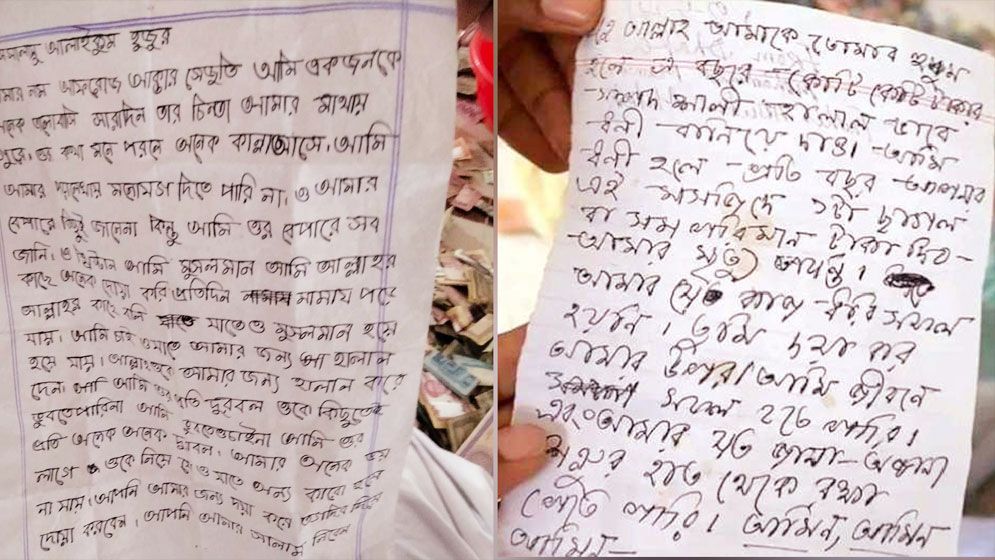 আলাইকুম হুজুর
নাম আফরোজ আক্তার সেজুতি আমি একজনকে
সারাদিন তার চিন্তা আমার মাথায়
কথা মনে পরলে অনেক কান্না আসে। আমি
আমার মনোযোগ দিতে পারি না। ও আমার
বেপারে কিছুই জানেনা কিন্তু আমি ওর বেপারে সব
জানি। ও খ্রিষ্টান আমি মুসলমান আমি আল্লাহর
কাছে অনেক দোয়া করি প্রতিদিন নামায পরে
আল্লাহর কাছে বলি যাতে ও মুসলমান হয়ে
যায়। আমি চাই ওযাতে আমার জন্য হালাল
হয়ে যায়। আল্লাহ ওকে আমার জন্য হালাল করে
দেন। আমি ওর প্রতি দুরবল ওকে কিছুতেই
ভুলতেপারিনা আমি ভুলতেওচাইনা আমি ওর
প্রতি অনেক অনেক দুরবল। আমার অনেক ভয়
লাগে ওকে নিয়ে যে ও যাতে অন্য কারো হয়ে
না যায়। আপনি আমার জন্য দয়া করে
দোয়া করবেন। আপনি আমার সালাম নিবেন
হে আল্লাহ আমাকে তোমার হুকুম
হলে বছরে কোটি কোটি টাকার
সম্পদ শালী হালাল ভাবে
ধনী বানিয়ে দাও। আমি
ধনী হলে প্রতি বছর
এই মসজিদে ১টা ছাগল
বা সম পরিমান টাকা দিব
আমার মৃত্যু পর্যন্ত।
আমার সফল
হয়নি। তুমি দয়া কর
আমার উপর। আমি জীবনে
সফল হতে পারি।
এবং আমার যত জানা-অজানা
শত্রুর হাত থেকে রক্ষা
পেতে পারি। আমিন, আমিন
আমিন-